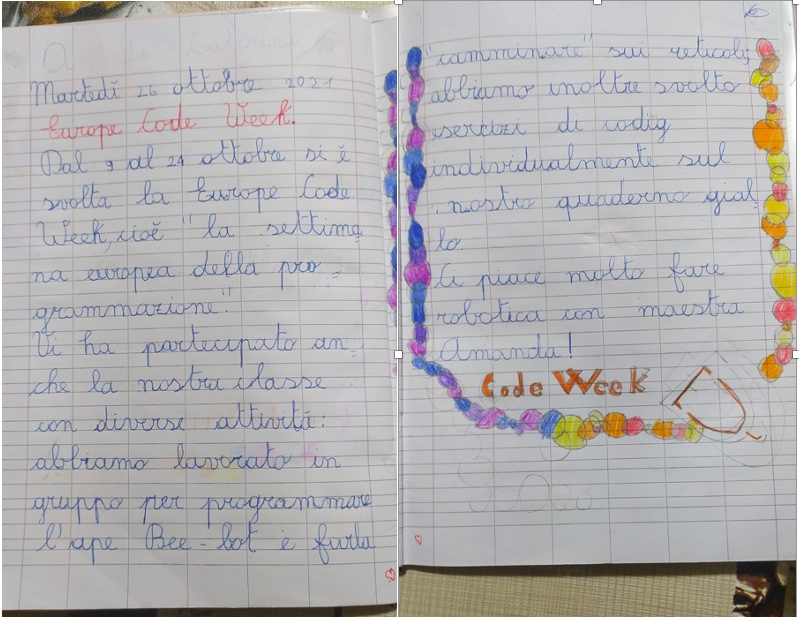 Martedì 26 ottobre 2021
Europe Code Week.
Dal 9 al 24 ottobre si è
svolta la Europe Code
Week, cioè "la settima
na europea della pro=
grammazione".
Vi ha partecipato an=
che la nostra classe
con diverse attività:
abbiamo lavorato in
gruppo per programmare
l'ape Bee-bot e farla
"camminare" sui reticoli,
abbiamo inoltre svolto
esercizi di codig
individualmente sul
nostro quaderno gial
lo.
Ci piace molto fare
robotica con maestra
Amanda!
Code Week